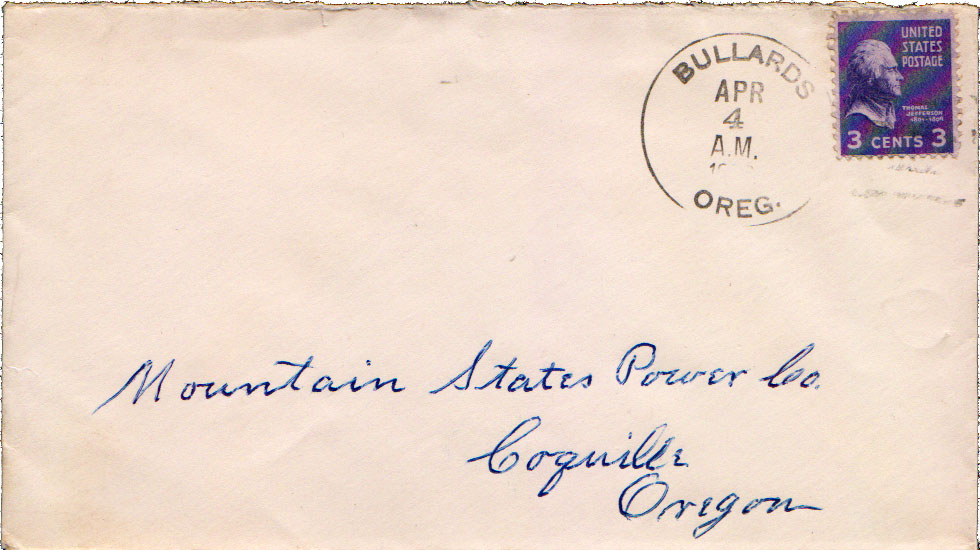 BULLARDS
APR
4
A.M.
OREG.
UNITED
STATES
POSTAGE
THOMAS
JEFFERSON
1801-1809
3 CENTS 3
Mountain States Power Co.
Coquille
Oregon